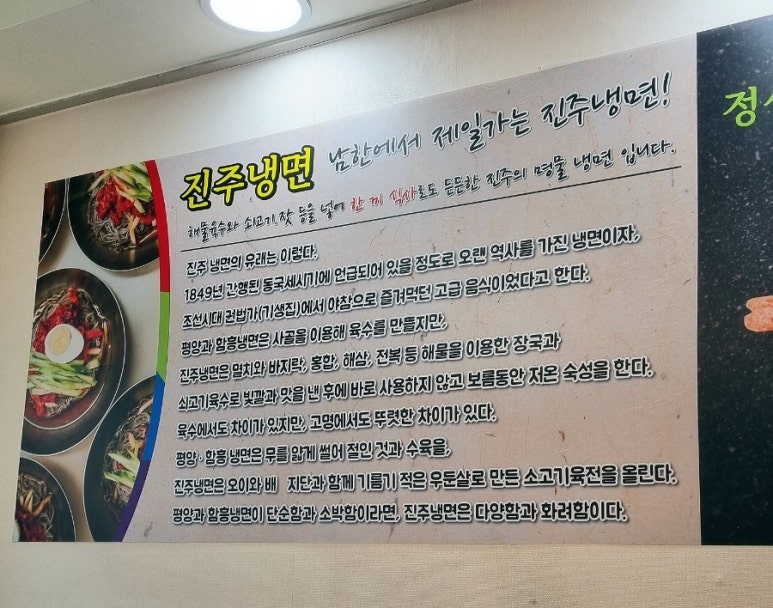 진주냉면 남한에서 제일가는 진주냉면!
해물육수와 쇠고기,잣 등을 넣어 한 끼 식사로도 든든한 진주의 명물 냉면 입니다.
진주 냉면의 유래는 이렇다.
1849년 간행된 동국세시기에 언급되어 있을 정도로 오랜 역사를 가진 냉면이자,
조선시대 권번가(기생집)에서 야참으로 즐겨먹던 고급 음식이었다고 한다.
평양과 함흥냉면은 사골을 이용해 육수를 만들지만,
진주냉면은 멸치와 바지락, 홍합, 해삼, 전복 등 해물을 이용한 장국과
쇠고기육수로 빛깔과 맛을 낸 후에 바로 사용하지 않고 보름동안 저온 숙성을 한다.
육수에서도 차이가 있지만, 고명에서도 뚜렷한 차이가 있다.
평양·함흥 냉면은 무를 얇게 썰어 절인 것과 수육을,
진주냉면은 오이와 배 지단과 함께 기름기 적은 우둔살로 만든 소고기육전을 올린다.
평양과 함흥냉면이 단순함과 소박함이라면, 진주냉면은 다양함과 화려함이다.